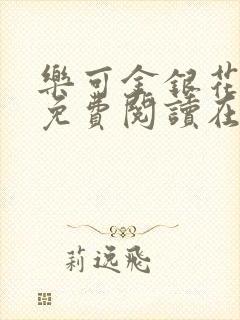 樂可金銀花
免費閱讀在
莉逸飛